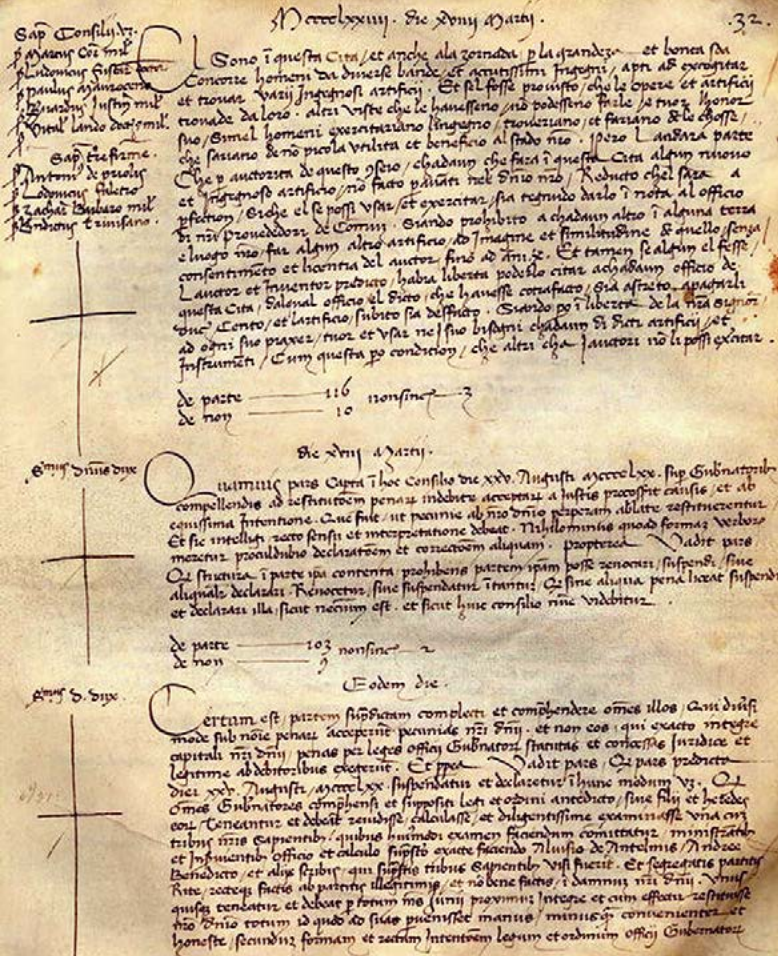 Mcccclxxiiii. die xviiii Martii.
.32.
Sap. Consilii vz.
p Marcus Cor. mil
p Ludovicus
p paulus Mauroceno
p Bernardus Justin. mil
p Vital lando doc. mil.
Sap. tre firme.
p Antoni. de priolis
p Lodovicus faletro
p Zachar. Barbaro mil
p Bndictus trivisano.
El Sono ĩ questa Cita / et anche ala zornada / p la grandeza et bonta soa
Concorre homeni da diverse bande / et accutissimi Ingegni / apti ad excogitar
et trovar varii Ingegnosi artificii. Et sel fosse provisto / che le opere et artificii
trovade da loro. altri viste che le havesseno / nõ podesseno farle / e tuor l honor
suo / Simel homeni exercitariano lingegno / troveriano / et fariano de le chosse /
che sariano de nõ picola utilita et beneficio al stado nr̃o. Pero L andara parte
Che p auctorita de questo 9seio / chadaun che fara ĩ questa Cita algun nuovo
et Ingegnoso artificio / nõ facto pavãti nel dñio nr̃o / Reducto chel sara a
pfection / Siche el se possi usar / et exercitar / sia tegnudo darlo ĩ nota al officio
di nr̃i Provededori de Comun. Siando prohibito a chadaun altro ĩ alguna terra
e luogo nr̃o / far algun altro artificio / ad Imagine et similitudine de quello / senza
consentimẽto et licentia del auctor / fino ad ãni .X. Et tamen se algun el fesse /
L auctor et Inventor predicto / habia liberta poderlo citar a chadaun officio de
questa Cita / daloual officio el dicto / che havesse cotrafacto / sia astreto apagarli
duc. Cento / et lartificio / subito sia desfacto. Siando po ĩ liberta de la nr̃a signor.
ad ogni suo piaxer / tuor et usar ne i suo bisogni chadaun di dicti artificii / et
Instrumẽti / Cum questa po condition / che altri cha i auctori nõ li possi exercitar.
de parte 116
de non 10
nonsinc 3
die xviii Martii.
Smus dñus dux
Quamuis pars Capta ĩ hoc Consilio die xxv. Augusti Mcccclxx. sup Gubnatorib
compellendis ad restitutõem penarũ indebite acceptarũ a Iustis processit causis / et ab
equissima Intentione. Que fuit / ut pecunie ab nr̃o dñio perperam ablate restituerentur
Et sic intelligi recto sensu et interpretatione debeat. Nihilominus quoad formaz verborũ
meretur proculdubio declaratõem et correctõem aliquam. propterea Vadit pars
Q strictura ĩ parte ipa contenta / prohibens partem ipam posse revocari / suspendi / sive
aliqualr declarari. Revocetur / sive suspendatur ĩtantuz. Q sine aliqua pena liceat suspendi
et declarari illa / sicut necium est. et sicut huic consilio nũc videbitur.
de parte 103
de non 9
nonsinc 2
Eodem die.
Smus D. dux.
Certum est / partem supdictam complecti et comprehendere omẽs illos / Qui divso
mode sub noĩe penarũ acceperũt pecunias nr̃i dñii. et non eos / qui exacto integre
capitali nr̃i dñii / penas per leges officii Gubnatorũ statutas et concessas Iuridice et
legitime ab debitoribus exegerũt. Et ppea Vadit pars / Q pars predicta
diei xxv. Augusti / Mcccclxx. suspendatur et declaretur ĩ hunc modum vz. Q
omẽs Gubnatores comphensi et suppositi legi et ordini antedicto / sive filii et heredes
eorũ Teneantur et debeãt revidisse / calculasse / et diligentissime examinasse una cuz
tribus nr̃is Sapientib / quibus huiusmodi examen faciendum comittatur / ministrantib
et Inservientib officio et calculo supsto exacte faciendo Aluisio de Antelmis / Andree
Benedicto / et aliis scribis / qui supstis tribus Sapientib visi fuerĩt. Et segregatis partitis
Rite / recteque factis ab partitis illegitimis / et nõ bene factis / ĩ damnuz nr̃i dñii. Unus
quisq teneatur et debeat p totum mẽs Junii proximuz Integre et cum effectu restituisse
nr̃o dñio totum id quod ad suas puenisset manus / minusq convenienter et
honeste / secunduz formam et rectam Intentõem legum et ordinum officii Gubernatorũ